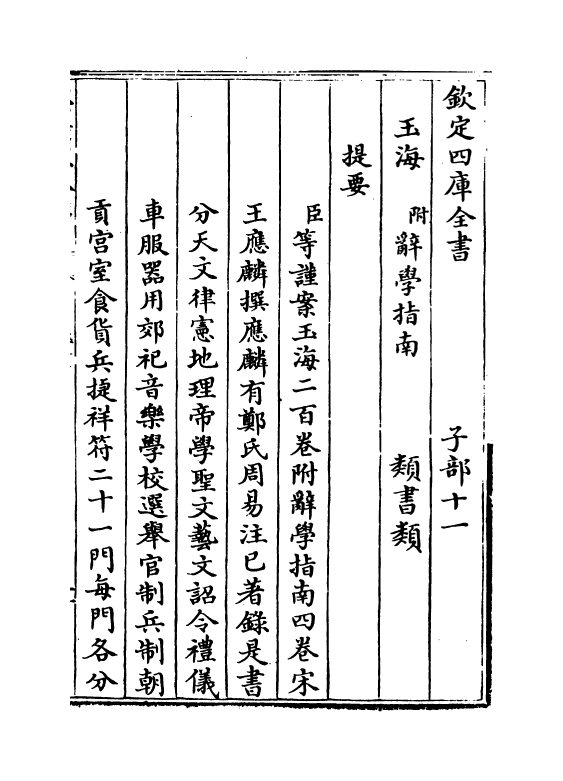 欽定四庫全書　子部十一
玉海附辭學指南　類書類
提要
臣等謹案玉海二百卷附辭學指南四卷宋
王應麟撰應麟有鄭氏周易注已著錄是書
分天文律憲地理帝學聖文藝文詔令禮儀
車服器用郊祀音樂學校選舉官制兵制朝
貢宫室食貨兵捷祥符二十一門每門各分